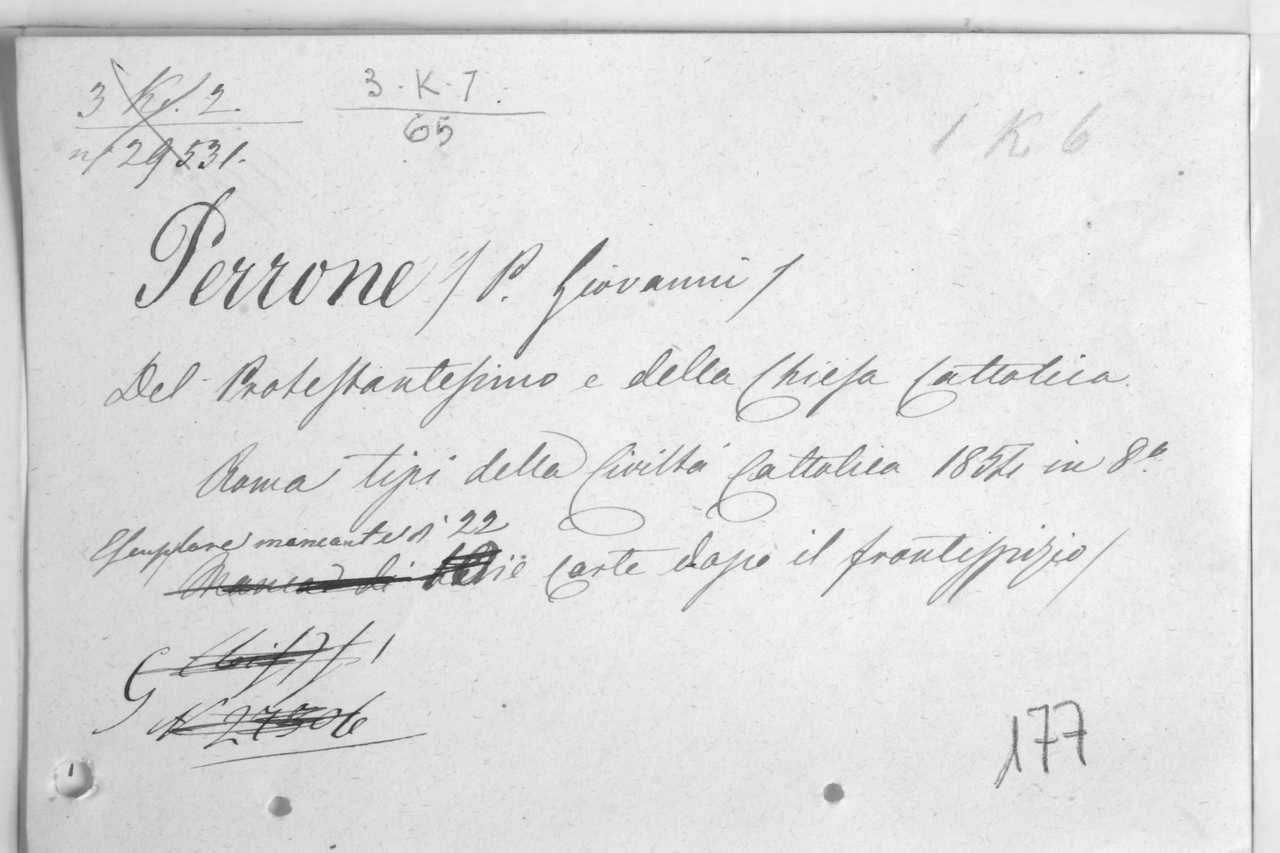 3 K. 2.
3 - K - 7.
1 K 6
n° 29531.
65
Perrone / P. Giovanni /
Del Protestantesimo e della Chiesa Cattolica
Roma tipi della Civiltà Cattolica 1854 in 8°
Esemplare mancante di 22
Manca di carte dopo il frontispizio /
G
N° 27306
177